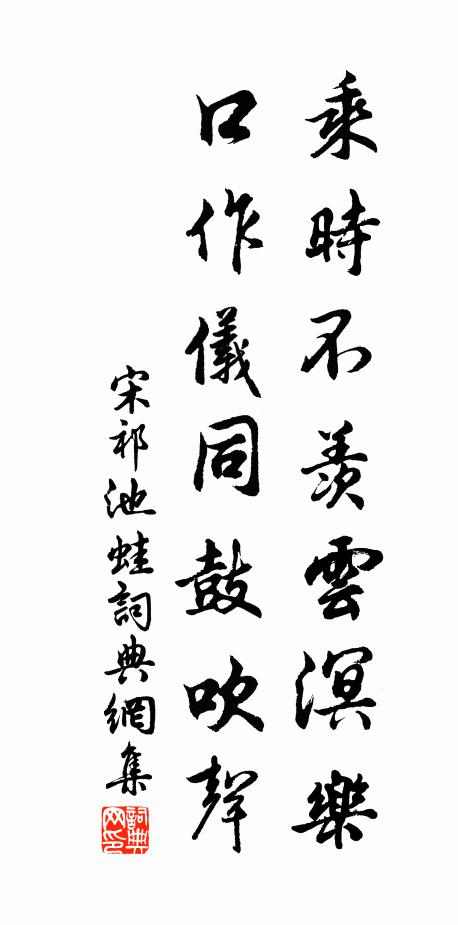 乘時不羨雲溟樂
口作儀同鼓吹聲
宋祁池蛙詞典網集
詞典網印